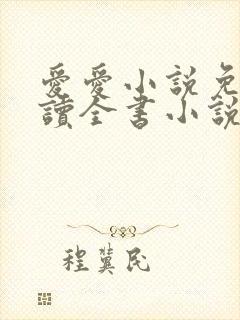 愛愛小說免
讀全書小說
程冀民